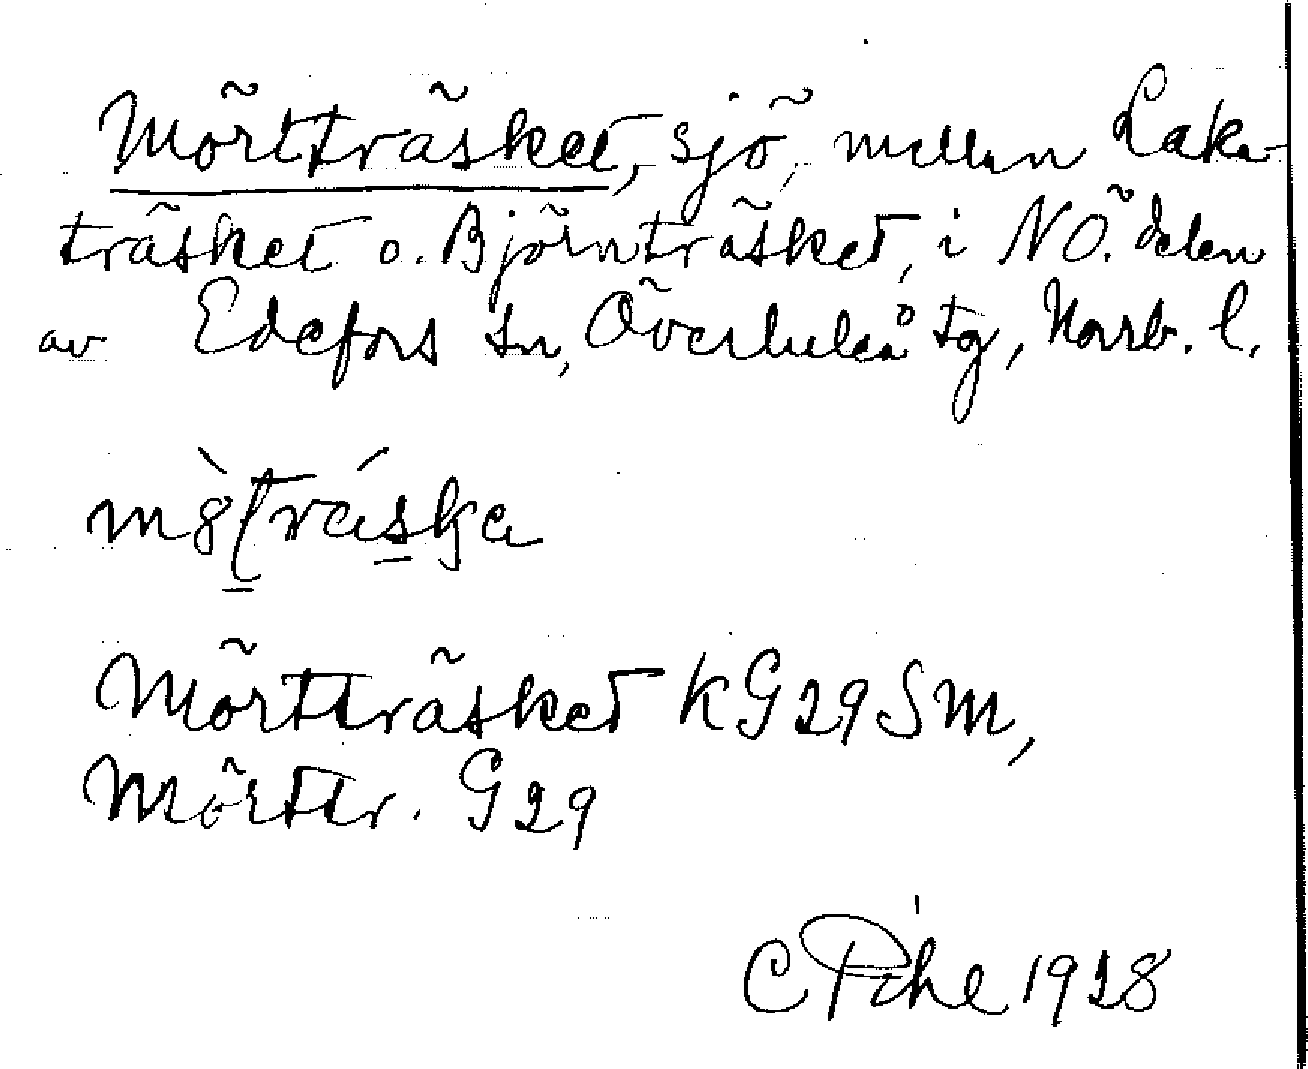 Mörtträsket, sjö, mellan Laka-
träsket o. Björnträsket, i NÖ. delen
av Edefors sn, Överluleå tg, Norrb. l.
mö̀tráska
Mörtträsket KG29SM,
Mörttr. G29
C Pihl 1928